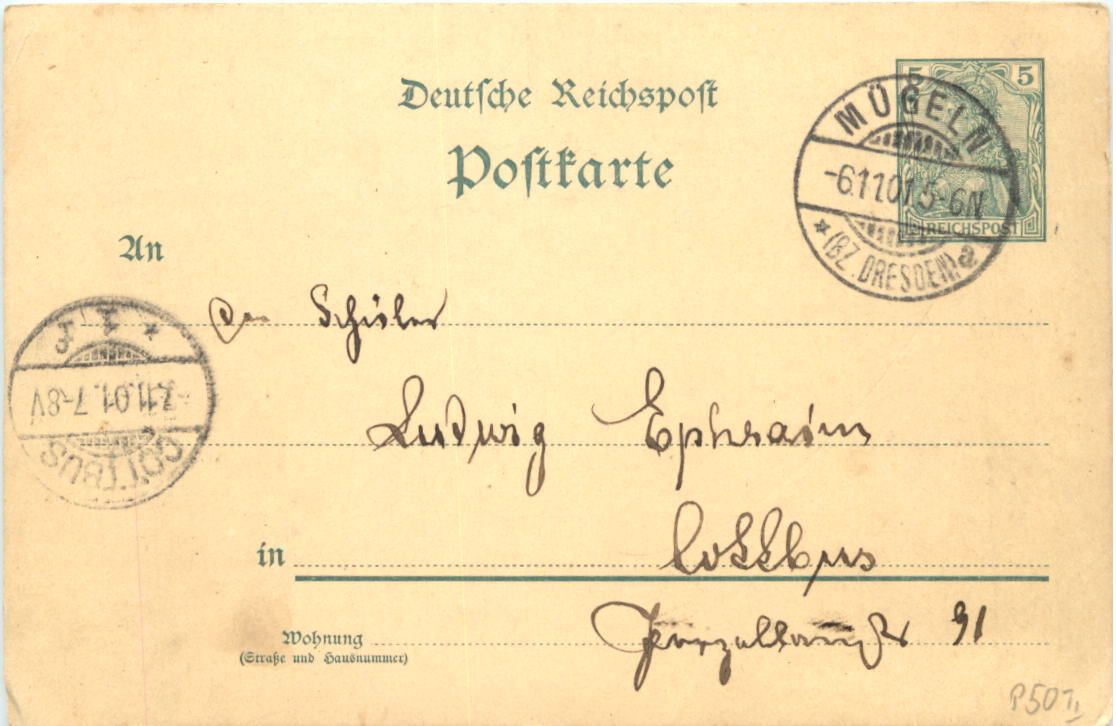 Deutsche Reichspost
Postkarte
5 5
REICHSPOST
MÜGELN
-6.11.01.5-6N
* (BZ. DRESDEN) a
An
den Schüler
Ludwig Ephraim
* 1
7.11.01.7-8V
COTTBUS
in Cottbus
Wohnung 91
(Straße und Hausnummer)
P50